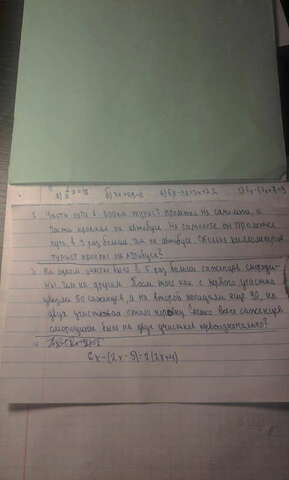 2. Часть пути в 600км турист пролетел на самолете, а
часть проехал на автобусе. На самолете он проделал
путь в 9 раз больше чем на автобусе. Сколько километров
турист проехал на автобусе?
3. На одном участке было в 5 раз больше саженцев смороди-
ны, чем на другом. После того как с первого участка
увезли 50 саженцев, а на второй посадили еще 90, на
двух участках стало поровну. Сколько всего саженцев
смородины было на двух участках первоначально?
4.
6x-(2x-5)=2(2x+4)